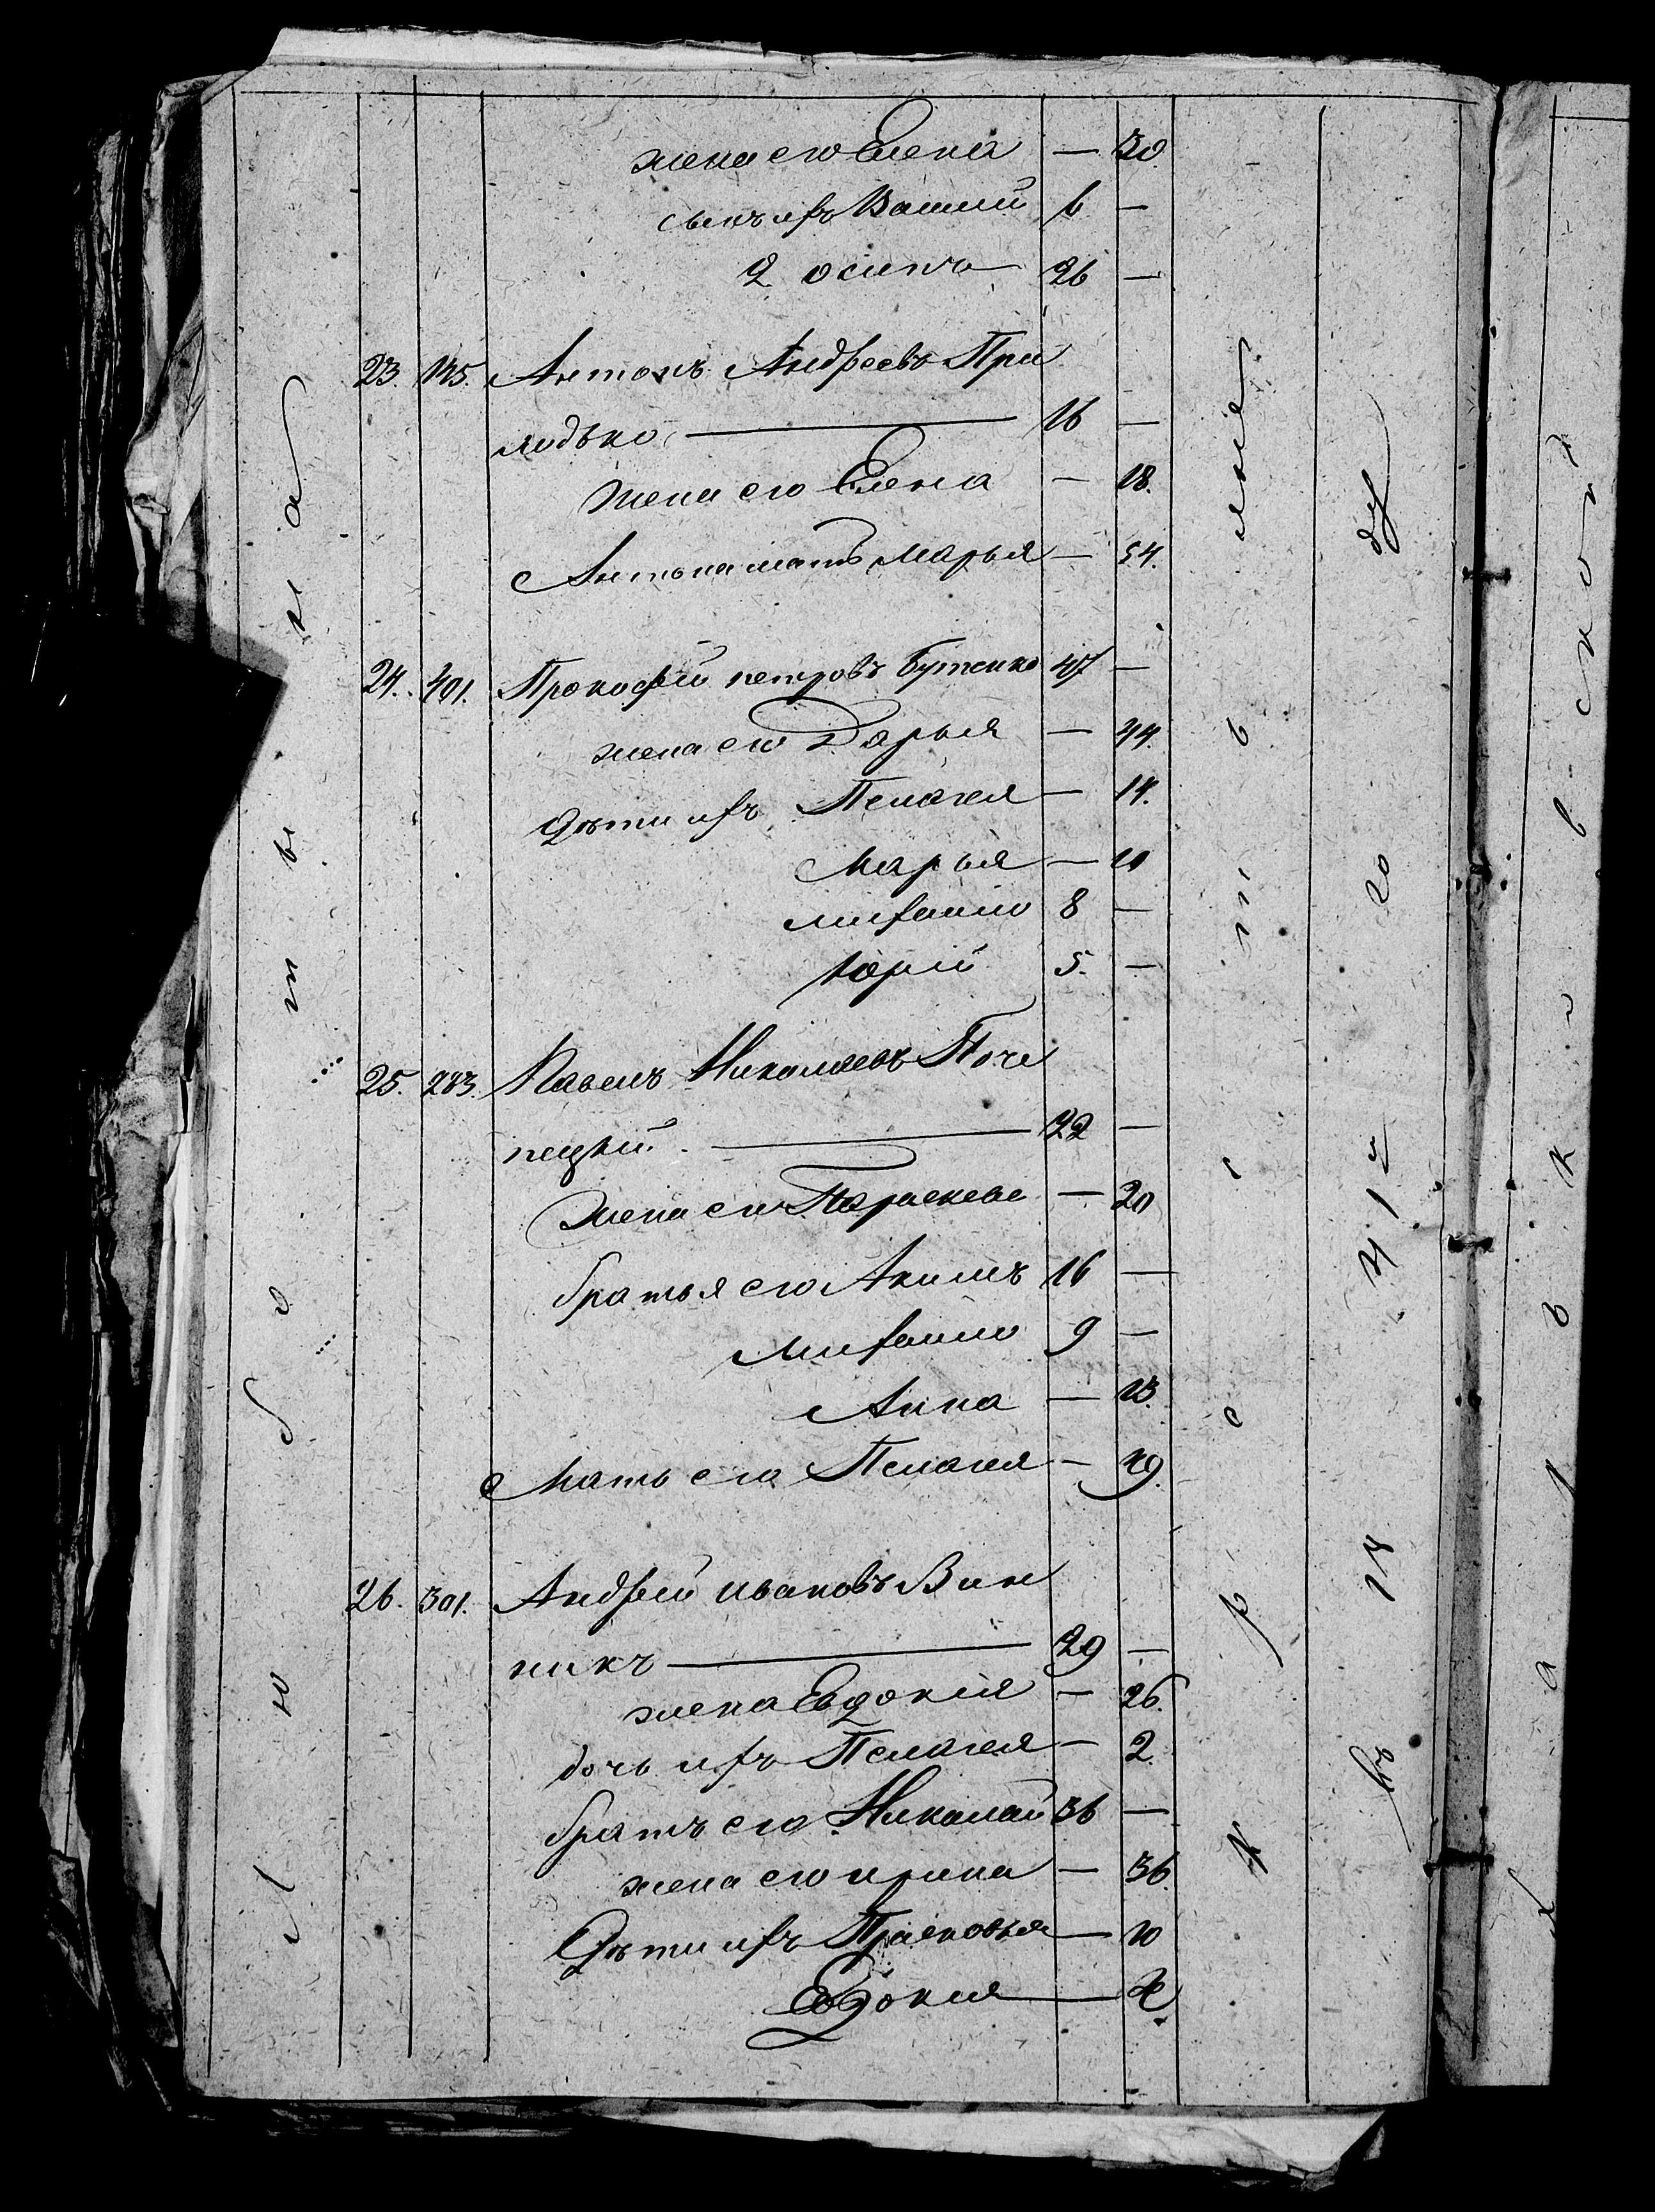 жена его Елена — 30.
сынъ ихъ Василій 6 —
2 осипъ 26 —
23. 135. Антонъ Андреевъ При
лодько 16 —
жена его Елена — 18.
Антона мать Марья — 54.
24. 401. Прокофій петровъ Бутенко 47 —
жена его Дарья — 44.
Дѣти ихъ Пелагея — 14.
Марья — 10
михайло 8 —
юрій 5. —
25. 283. Павелъ Николаевъ Поче
пецкій 22 —
жена его Параскеве — 20
братья его Акимъ 16 —
михайло 9 —
Анна — 13.
Мать его Пелагея — 49.
26. 301. Андрей ивановъ Вин
никъ 29 —
жена Евдокия — 26.
дочь ихъ Пелагея — 2
братъ его Николай 36 —
жена его ирина — 36.
Дѣти ихъ Прасковья — 10
Евдокия —